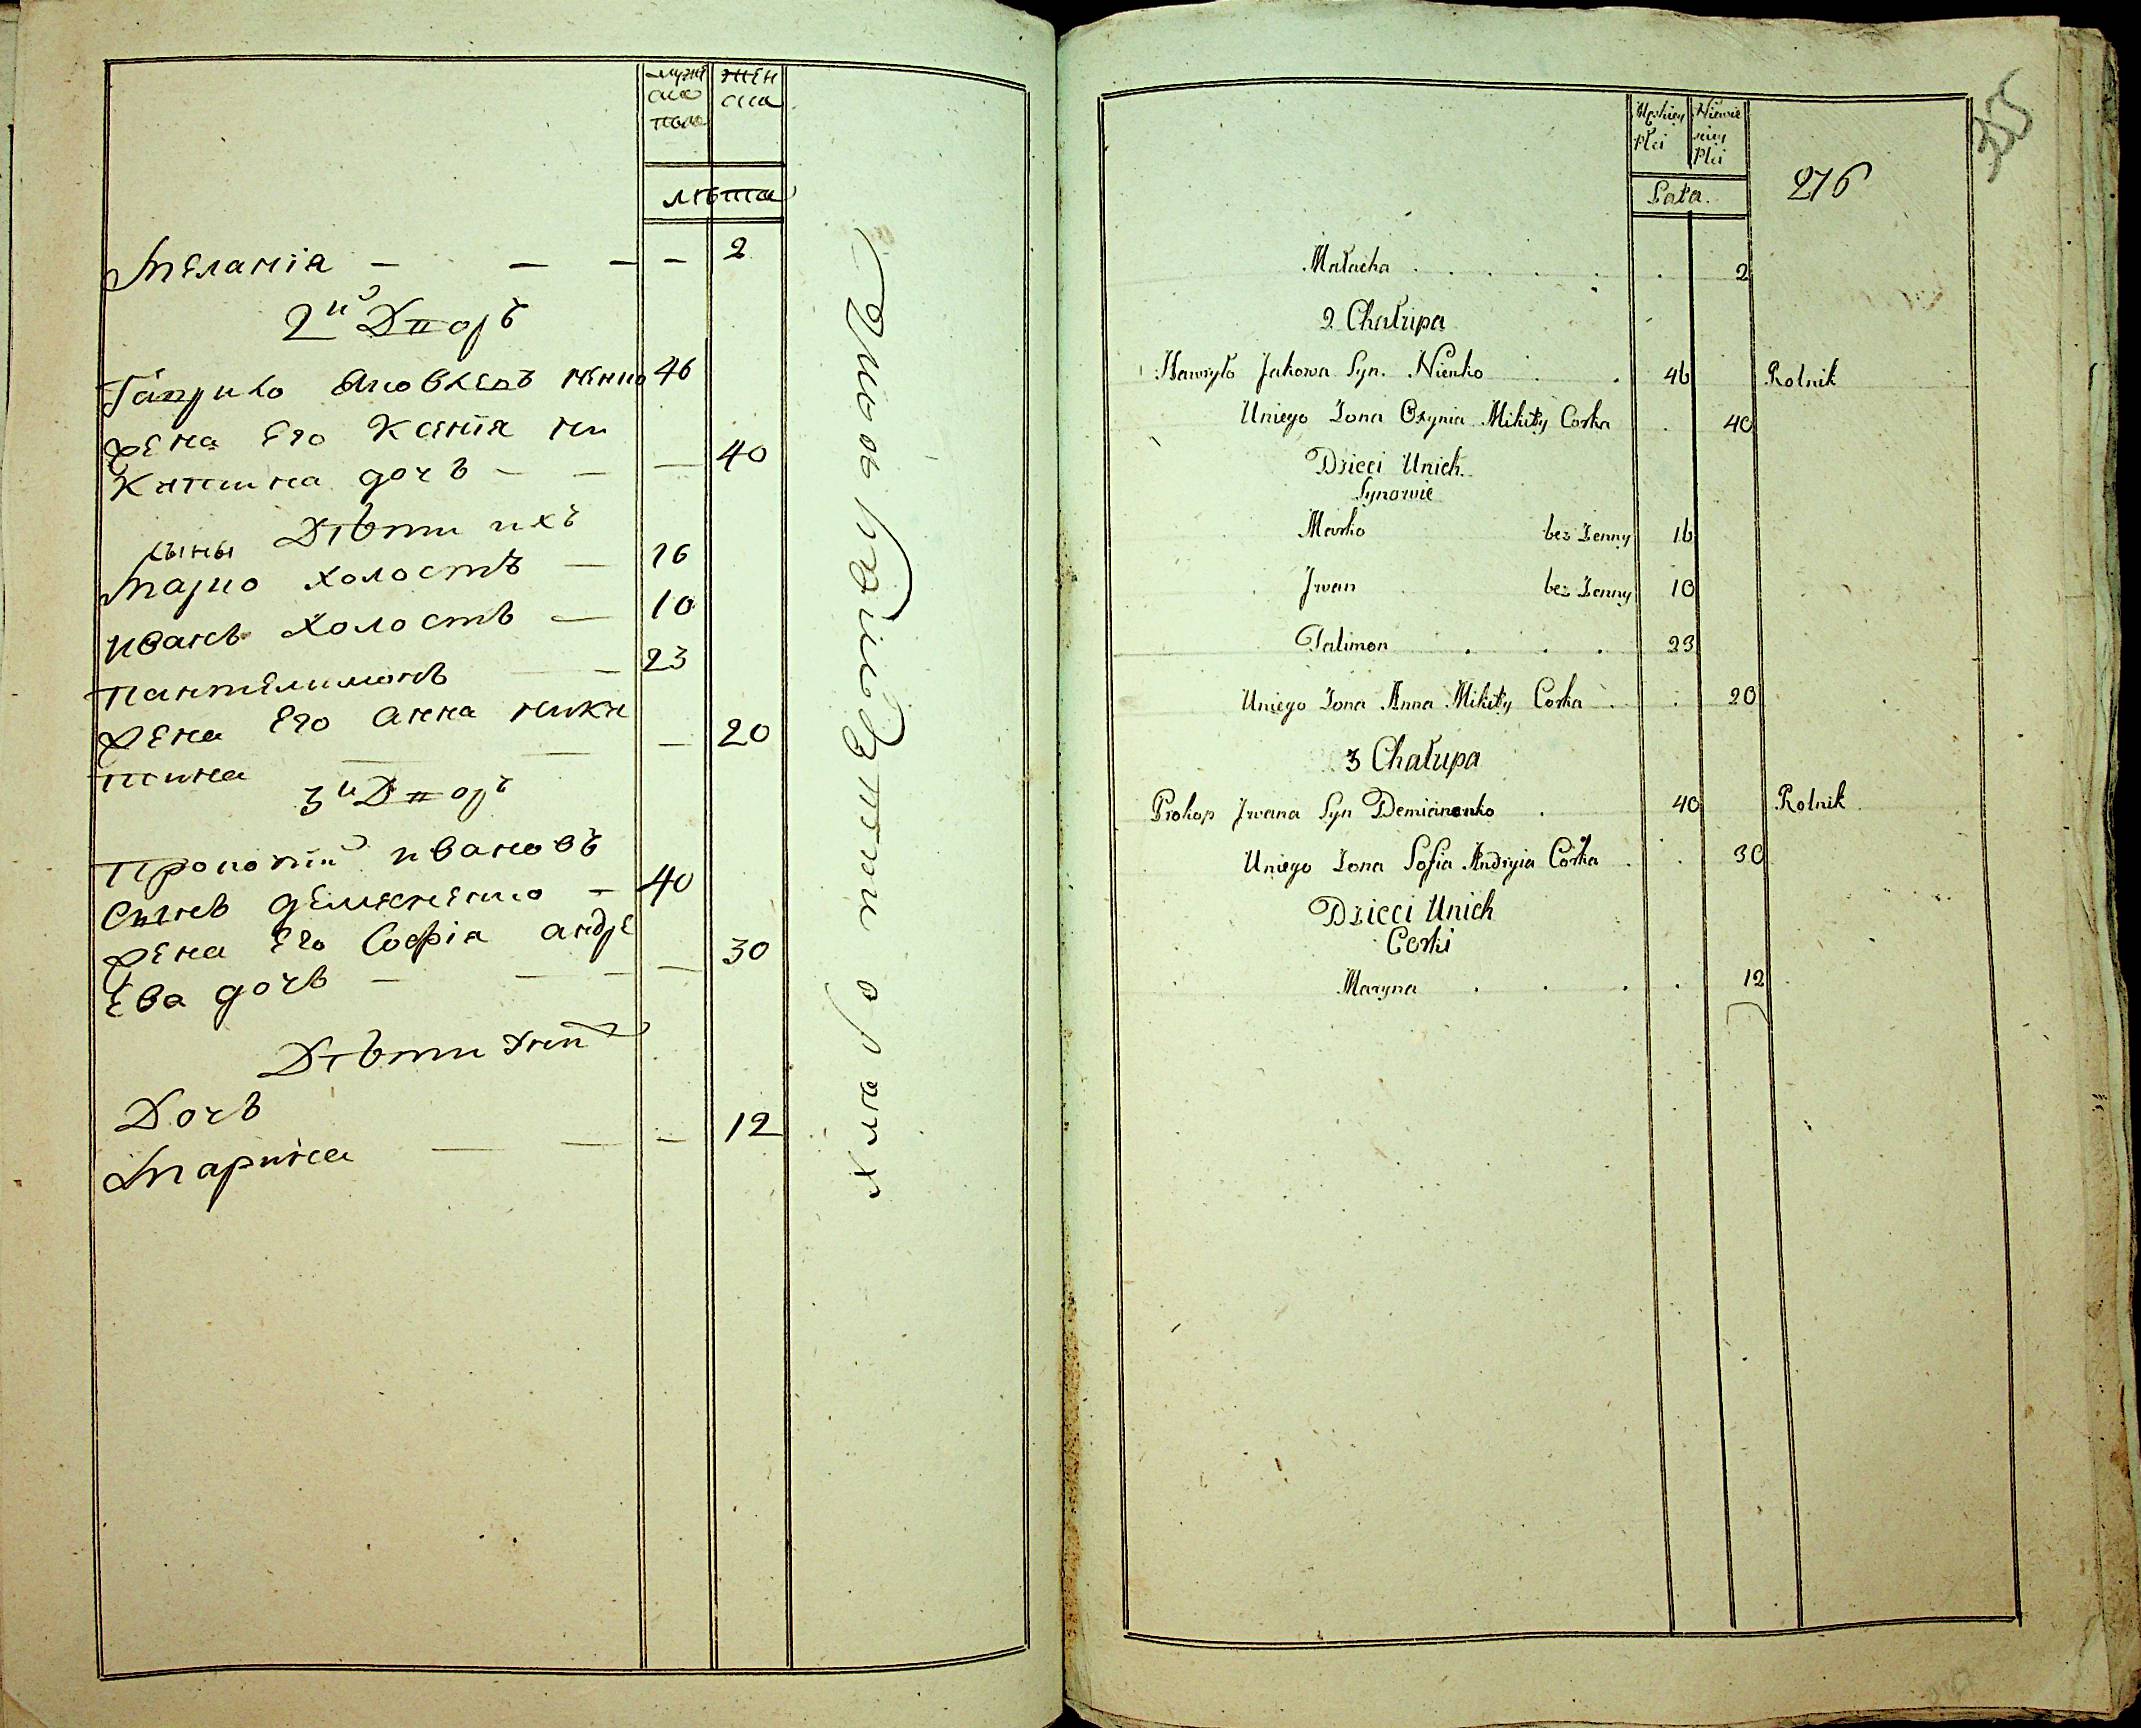 мужс
ка
пола
жен
ска
лѣта
Мелания — — — — 2
2й Дворъ
Гаврило Яковлевъ Ненко 46
жена его Ксения Ни
китина дочь — — — 40
Дѣти ихъ
сыны
Марко холостъ — 16
Иванъ холостъ — 10
Пантелимонъ — — 23
жена его Анна Ники
тина — — — 20
3й Дворъ
Прокопий Ивановъ
сынъ Демяненко — 40
жена его София Андре
ева дочь — — — — 30
Дѣти
Дочь
Марина — — — 12
хлѣборо
Męskiey
Płci
Niewie
sciey
Płci
Lata.
276
355
Małacha . . . . . 2
2 Chałupa
Hawryło Jakowa Syn. Nienko . . 46 Rolnik
Uniego Żona Oxynia Mikity Corka . 40
Dzieci Unich
Synowie
Marko bez Żenny 16
Jwan bez Żenny 10
Palimon . . . 23
Uniego Żona Anna Mikity Corka . . 20
3 Chałupa
Prokop Jwana Syn Demianenko . 40 Rolnik
Uniego Żona Sofia Andryia Córka . . 30
Dzieci Unich
Corki
Maryna . . . . 12